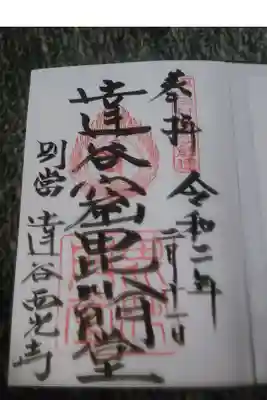 奉拝
令和二年
二月十一日
達谷窟毘沙門堂
別當 達谷西光寺